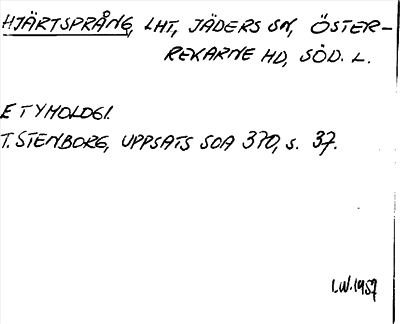 HJÄRTSPRÅNG, LHT, JÄDERS SN, ÖSTER-
REKARNE HD, SÖD. L.
ETYMOLOGI.
T. STENBORG, UPPSATS SOA 370, s. 37.
I.W. 1957